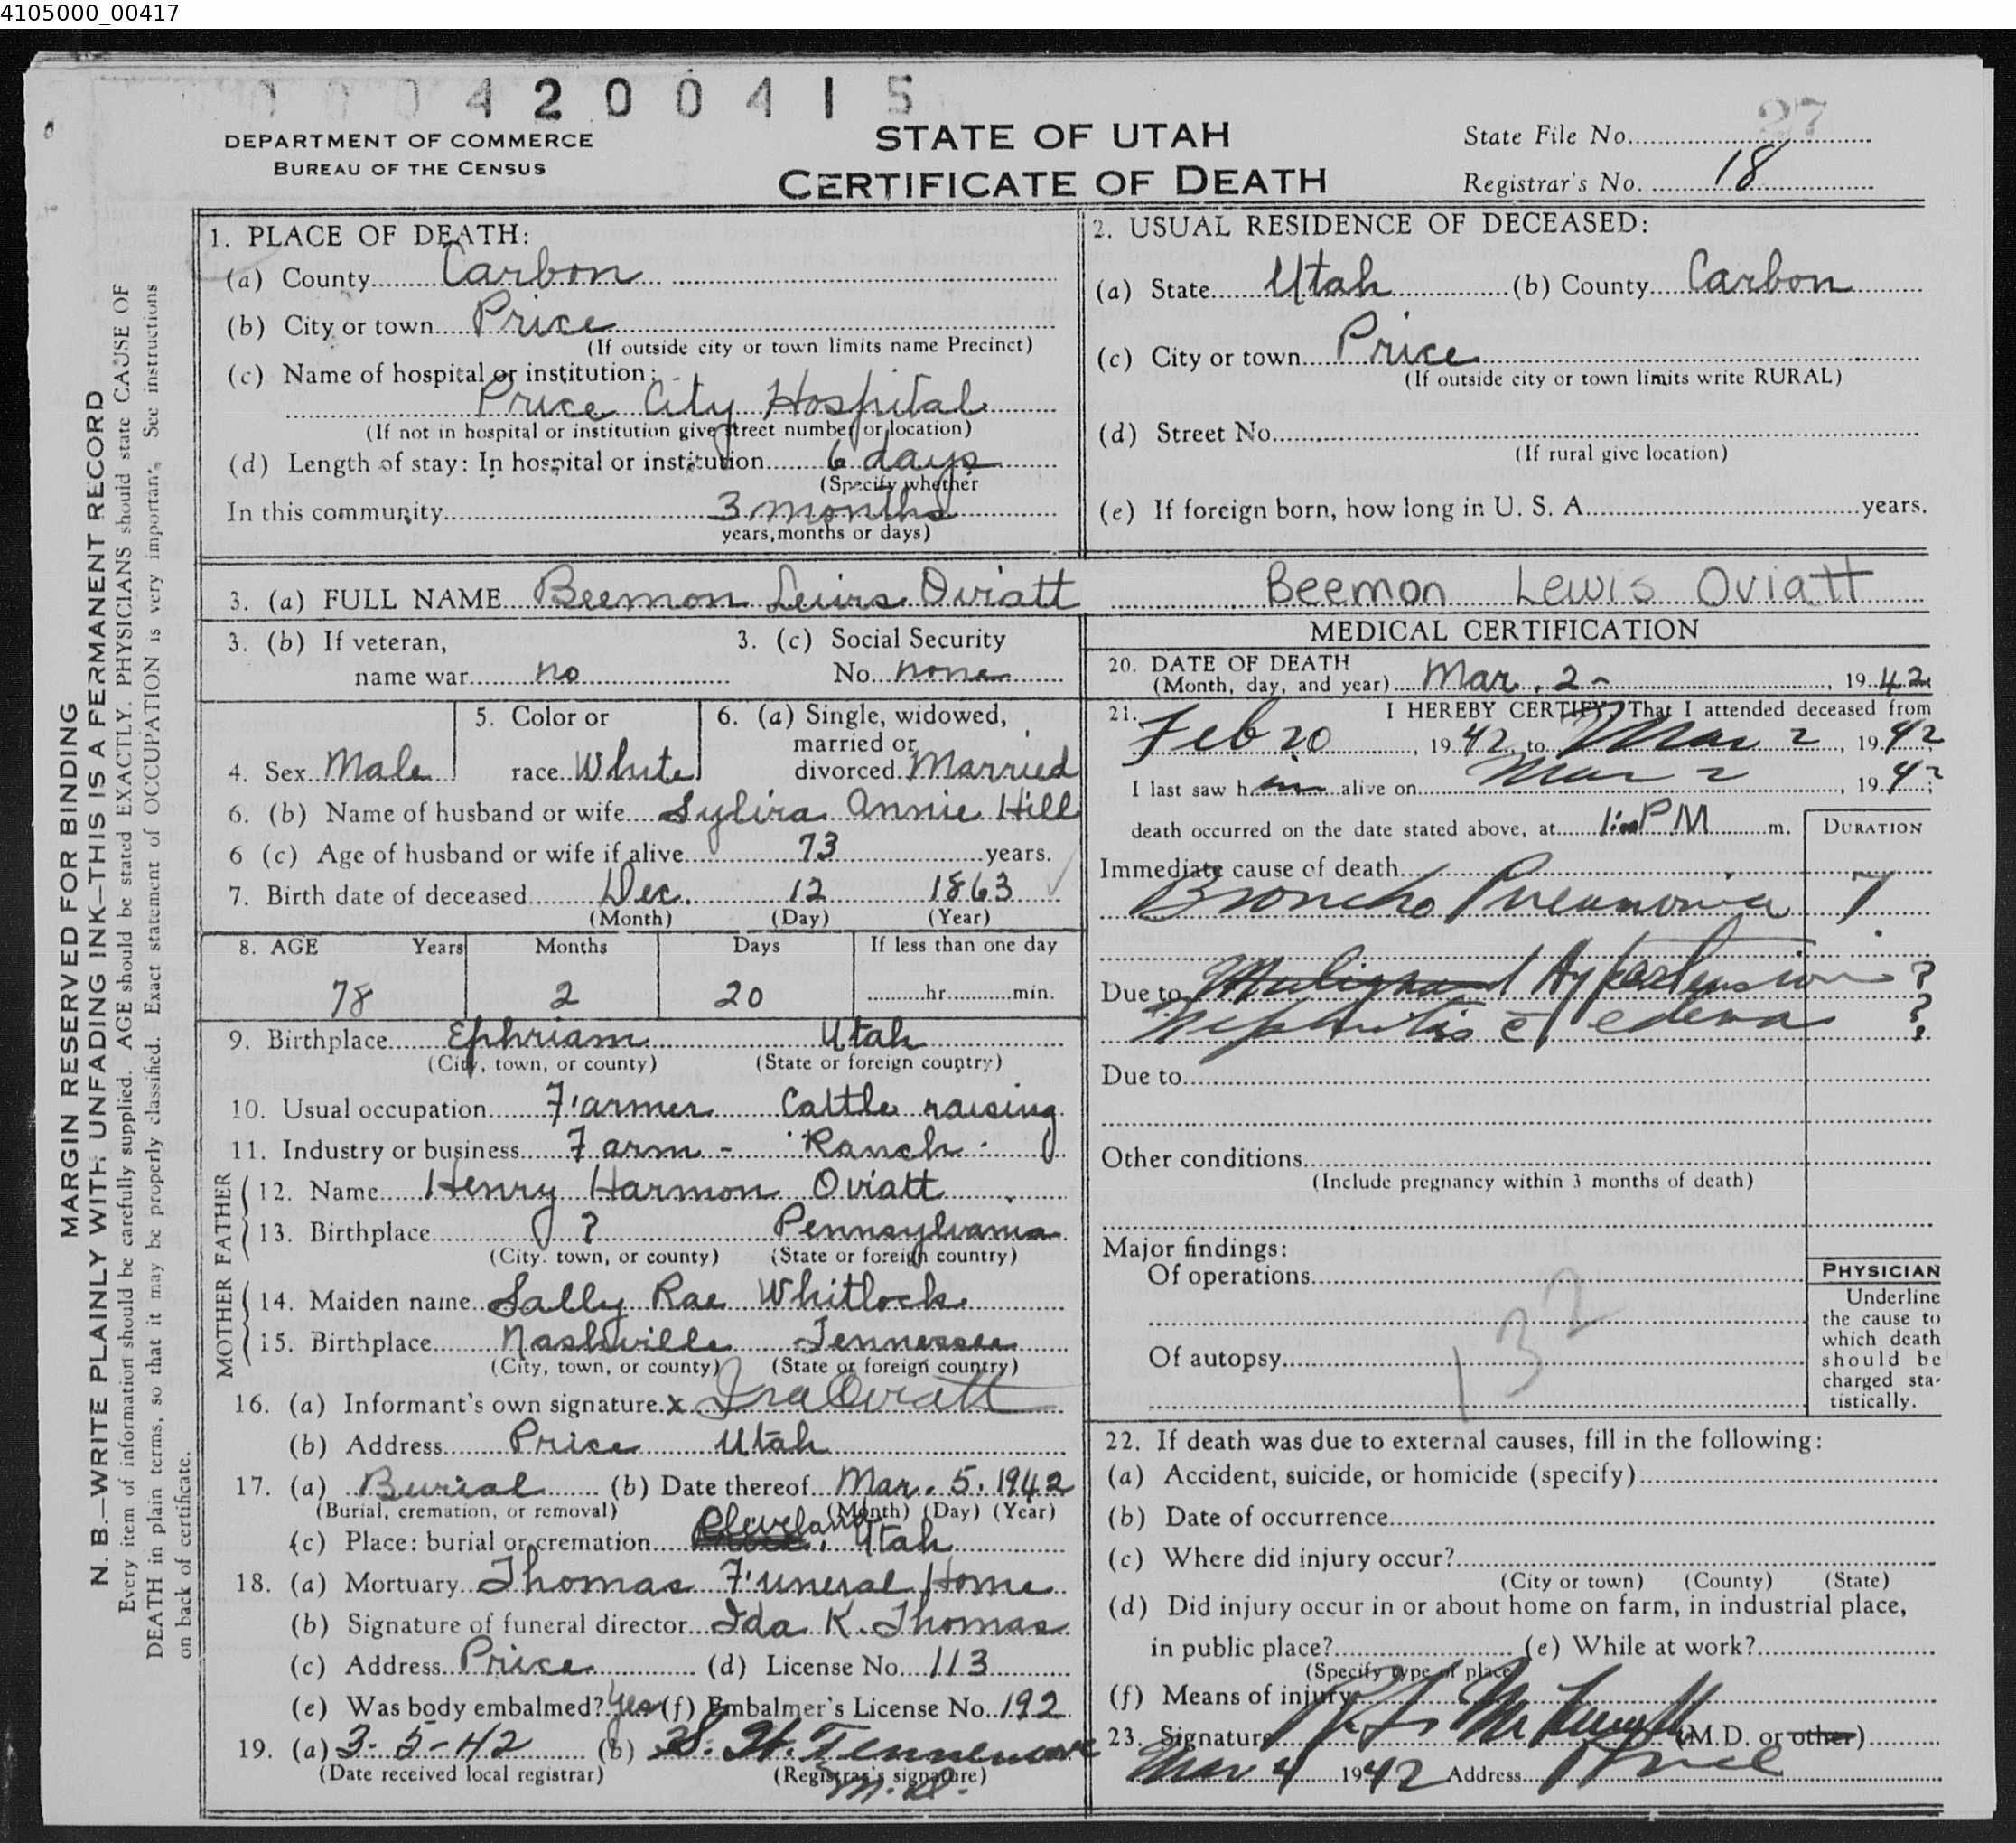 4105000_00417
0004200415
27
DEPARTMENT OF COMMERCE
BUREAU OF THE CENSUS
STATE OF UTAH
CERTIFICATE OF DEATH
State File No.
Registrar's No. 18
MARGIN RESERVED FOR BINDING
N. B.—WRITE PLAINLY WITH UNFADING INK—THIS IS A PERMANENT RECORD
Every item of information should be carefully supplied. AGE should be stated EXACTLY. PHYSICIANS should state CAUSE OF
DEATH in plain terms, so that it may be properly classified. Exact statement of OCCUPATION is very important. See instructions
on back of certificate.
1. PLACE OF DEATH:
(a) County Carbon
(b) City or town Price
(If outside city or town limits name Precinct)
(c) Name of hospital or institution:
Price City Hospital
(If not in hospital or institution give street number or location)
(d) Length of stay: In hospital or institution 6 days
(Specify whether
In this community 3 months
years, months or days)
2. USUAL RESIDENCE OF DECEASED:
(a) State Utah (b) County Carbon
(c) City or town Price
(If outside city or town limits write RURAL)
(d) Street No.
(If rural give location)
(e) If foreign born, how long in U. S. A. years.
3. (a) FULL NAME Beemon Lewis Oviatt Beemon Lewis Oviatt
3. (b) If veteran,
name war no
3. (c) Social Security
No. none
4. Sex Male
5. Color or
race White
6. (a) Single, widowed,
married or
divorced Married
6. (b) Name of husband or wife Sylvira Annie Hill
6 (c) Age of husband or wife if alive 73 years.
7. Birth date of deceased Dec. 12 1863
(Month) (Day) (Year)
8. AGE Years Months Days If less than one day
78 2 20 hr. min.
9. Birthplace Ephriam Utah
(City, town, or county) (State or foreign country)
10. Usual occupation Farmer Cattle raising
11. Industry or business Farm - Ranch
FATHER
12. Name Henry Harmon Oviatt
13. Birthplace ? Pennsylvania
(City, town, or county) (State or foreign country)
MOTHER
14. Maiden name Sally Rae Whitlock
15. Birthplace Nashville Tennessee
(City, town, or county) (State or foreign country)
16. (a) Informant's own signature x Ira Oviatt
(b) Address Price Utah
17. (a) Burial (b) Date thereof Mar. 5. 1942
(Burial, cremation, or removal) (Month) (Day) (Year)
(c) Place: burial or cremation Cleveland, Utah
18. (a) Mortuary Thomas Funeral Home
(b) Signature of funeral director Ida K. Thomas
(c) Address Price (d) License No. 113
(e) Was body embalmed? Yes (f) Embalmer's License No. 192
19. (a) 3-5-42 (b)
(Date received local registrar) (Registrar's signature)
M.D.
MEDICAL CERTIFICATION
20. DATE OF DEATH
(Month, day, and year) Mar. 2- , 1942
21. I HEREBY CERTIFY, That I attended deceased from
Feb 20, 1942, to Mar 2, 1942
I last saw him alive on Mar 2, 1942;
death occurred on the date stated above, at 1:00 PM m.
DURATION
Immediate cause of death
Broncho Pneumonia 7
Due to Malignant Hypertension ?
Nephritis c̄ edema ?
Due to
Other conditions
(Include pregnancy within 3 months of death)
Major findings:
Of operations
Of autopsy
132
PHYSICIAN
Underline
the cause to
which death
should be
charged sta-
tistically.
22. If death was due to external causes, fill in the following:
(a) Accident, suicide, or homicide (specify)
(b) Date of occurrence
(c) Where did injury occur?
(City or town) (County) (State)
(d) Did injury occur in or about home on farm, in industrial place,
in public place? (e) While at work?
(Specify type of place)
(f) Means of injury
23. Signature (M.D. or other)
Mar 4 1942 Address Price